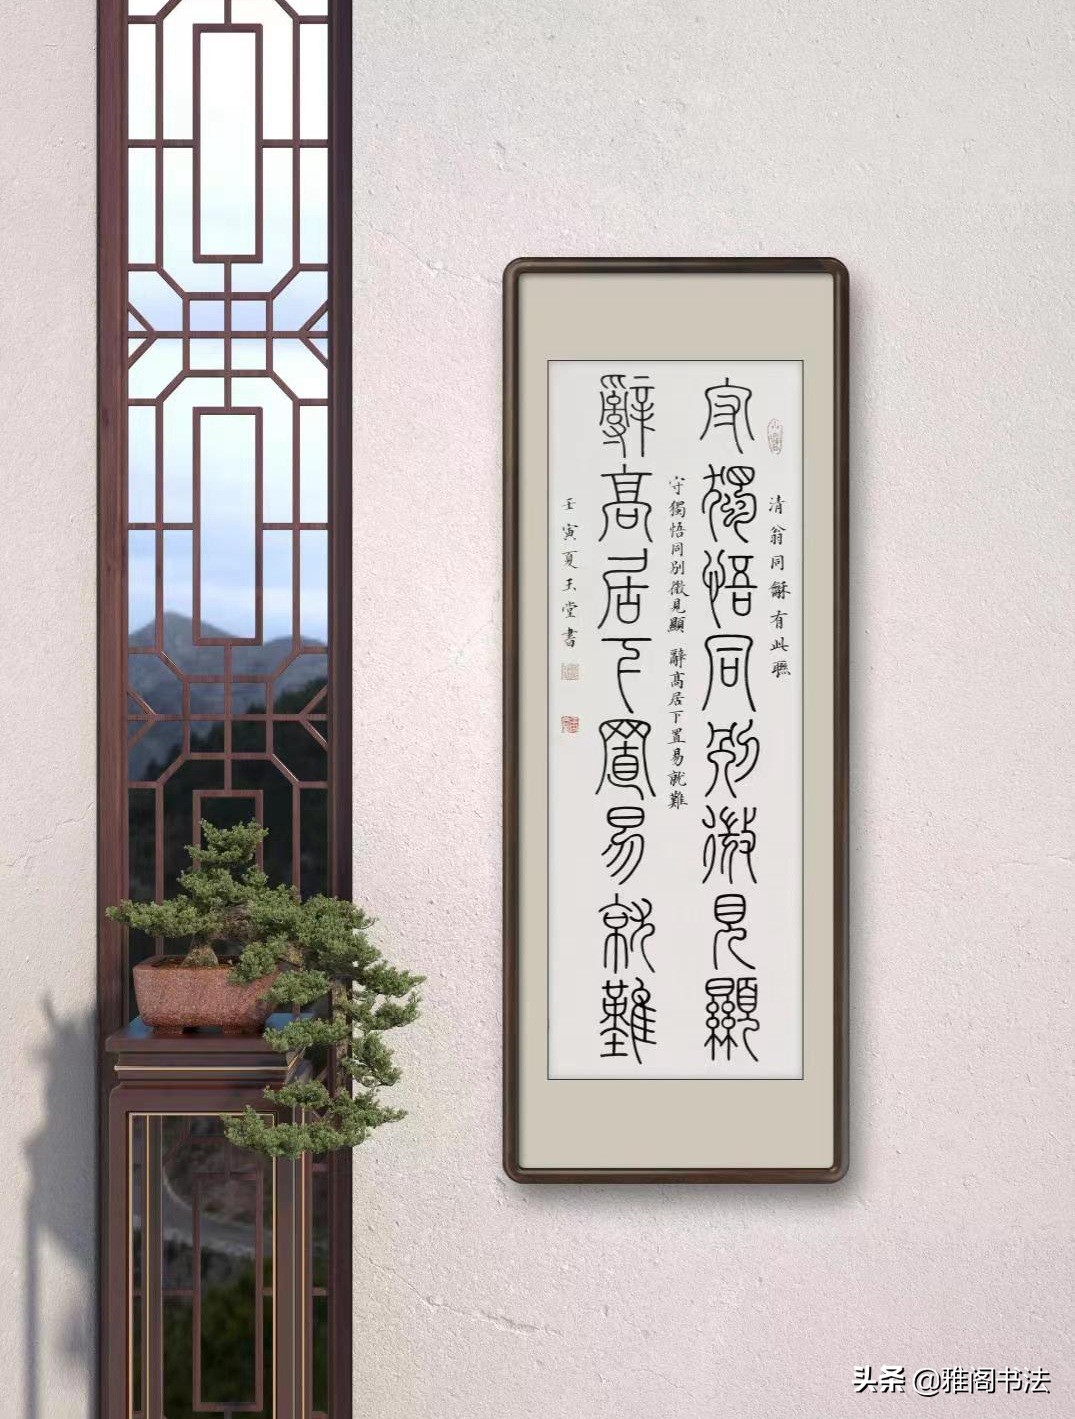 清翁同龢有此聯
守獨悟同別微見顯
守獨悟同別微見顯 辭高居下置易就難
辭高居下置易就難
壬寅夏玉堂書
头条 @雅阁书法